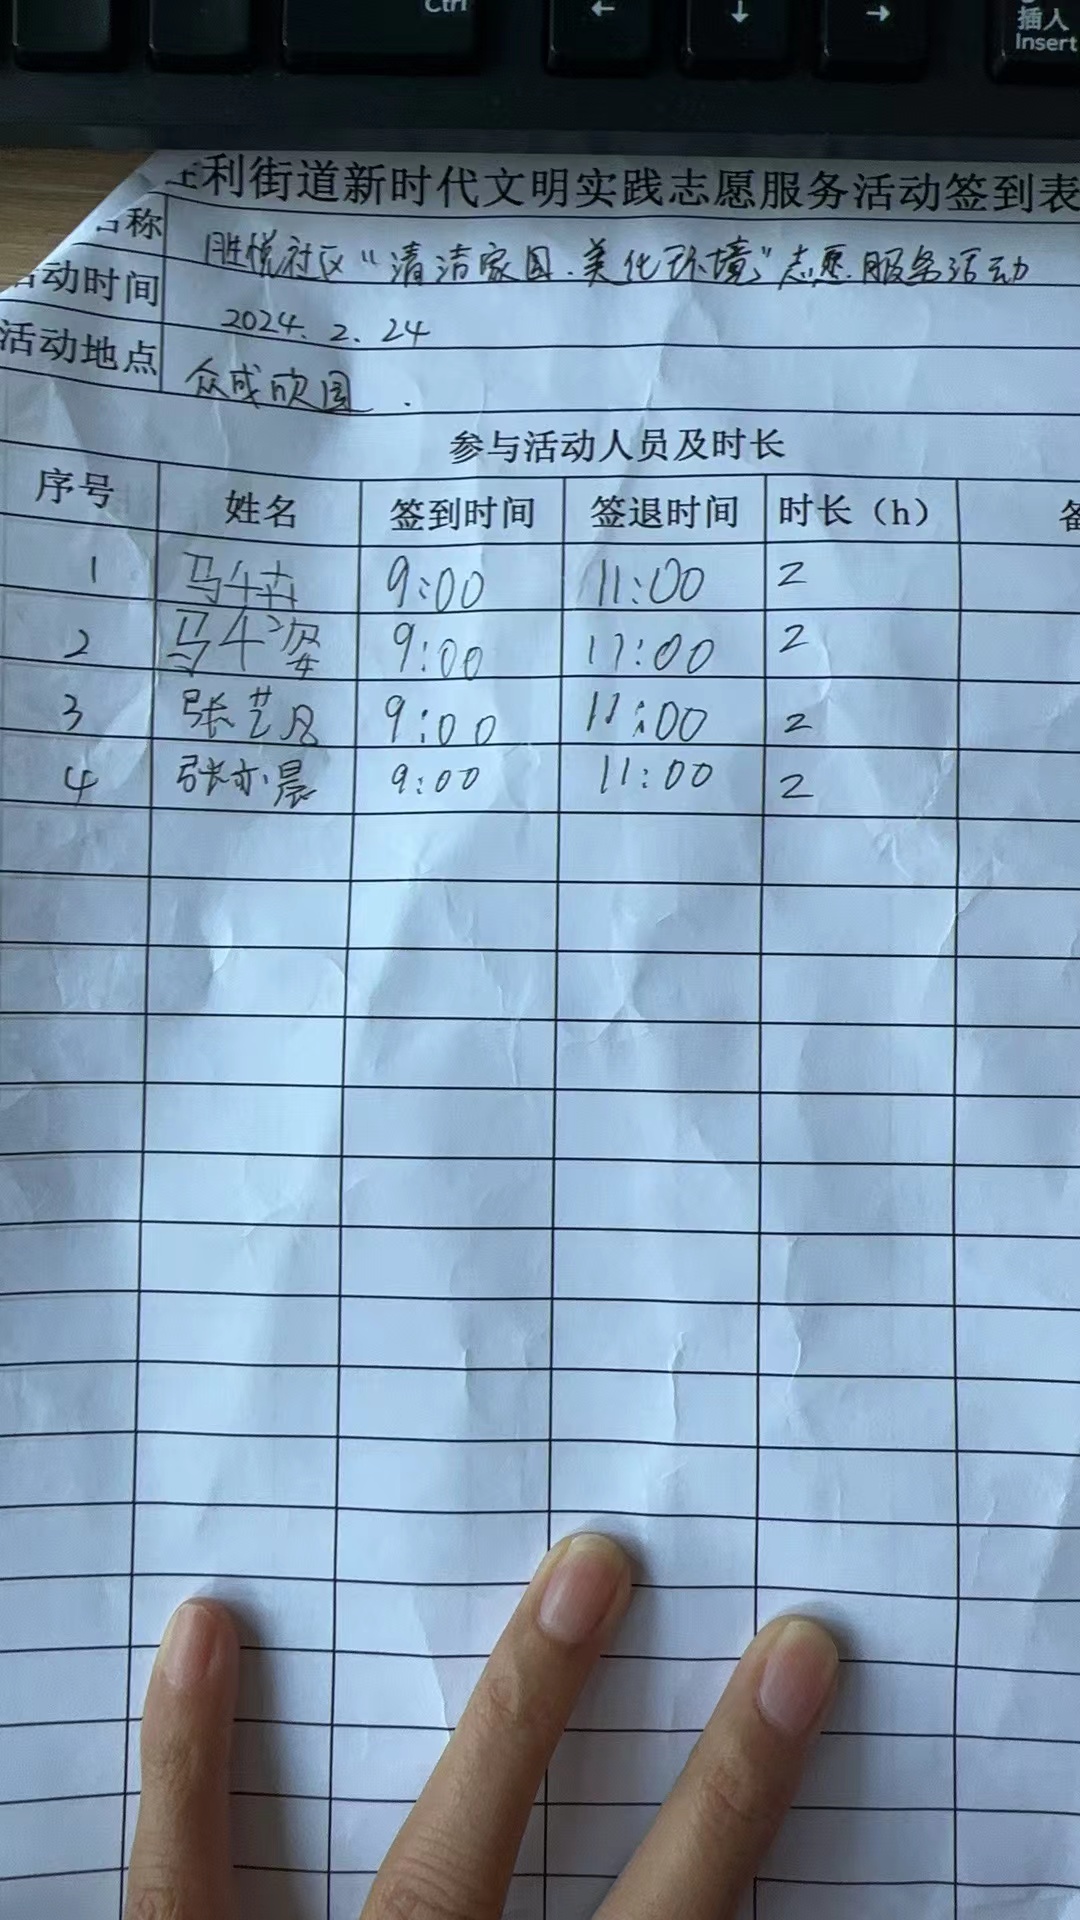 Ctrl ← ↓ → 插入
Insert
利街道新时代文明实践志愿服务活动签到表
名称 胜悦社区“清洁家园.美化环境”志愿服务活动
活动时间 2024.2.24
活动地点 众成欣园.
参与活动人员及时长
序号 姓名 签到时间 签退时间 时长（h） 备
1 马 9:00 11:00 2
2 马 姿 9:00 11:00 2
3 张艺凡 9:00 11:00 2
4 张亦晨 9:00 11:00 2